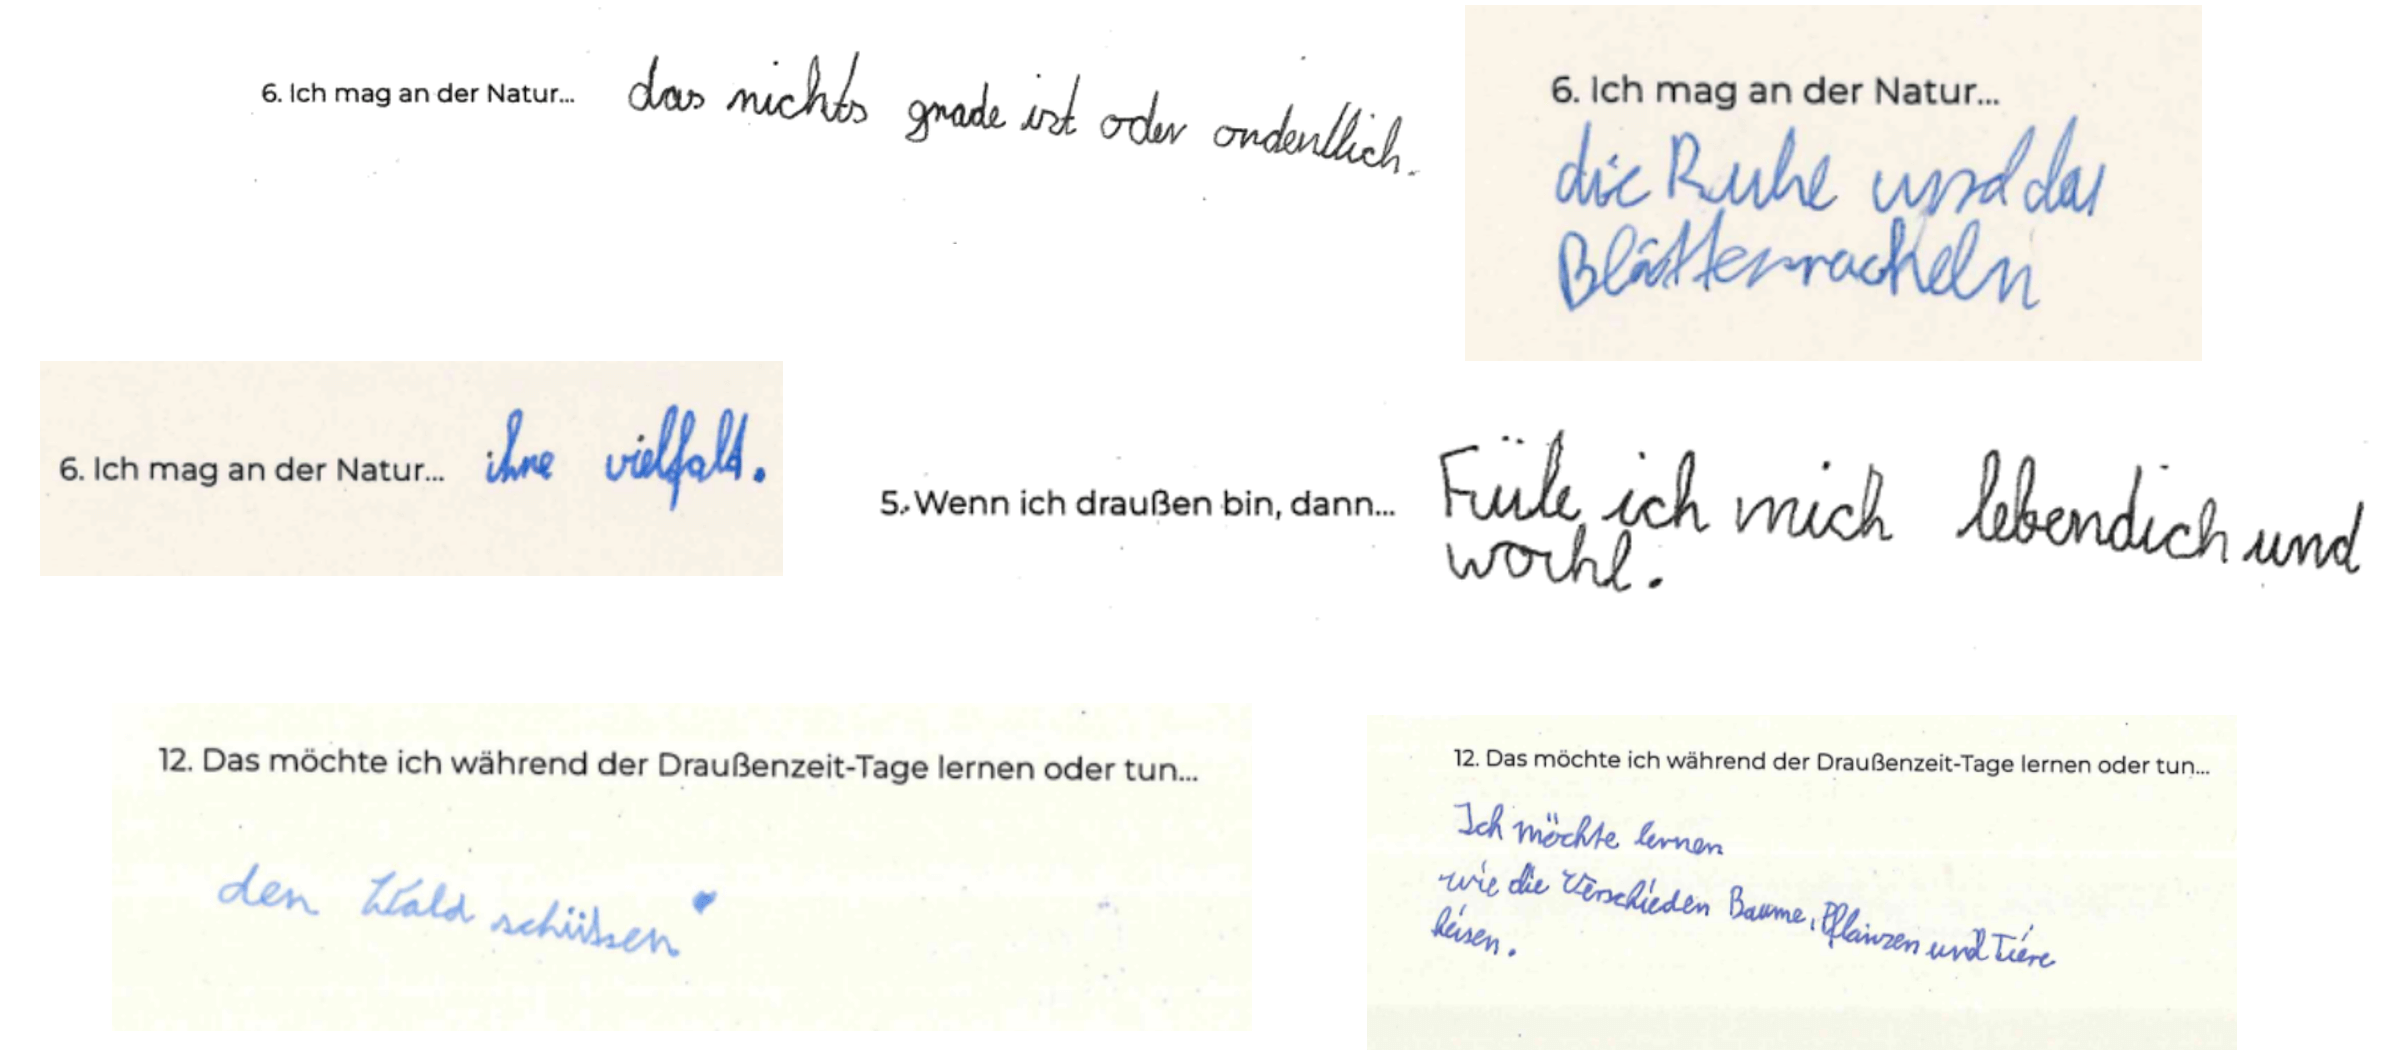 6. Ich mag an der Natur... das nichts grade ist oder ordentlich.
6. Ich mag an der Natur...
die Ruhe und das
Blätterracheln
6. Ich mag an der Natur... ihre vielfald.
5. Wenn ich draußen bin, dann... Füle ich mich lebendich und
wohl.
12. Das möchte ich während der Draußenzeit-Tage lernen oder tun...
den Wald schütsen
12. Das möchte ich während der Draußenzeit-Tage lernen oder tun...
Ich möchte lernen
wie die Verschieden Baume, Pflanzen und Tiere
heisen.